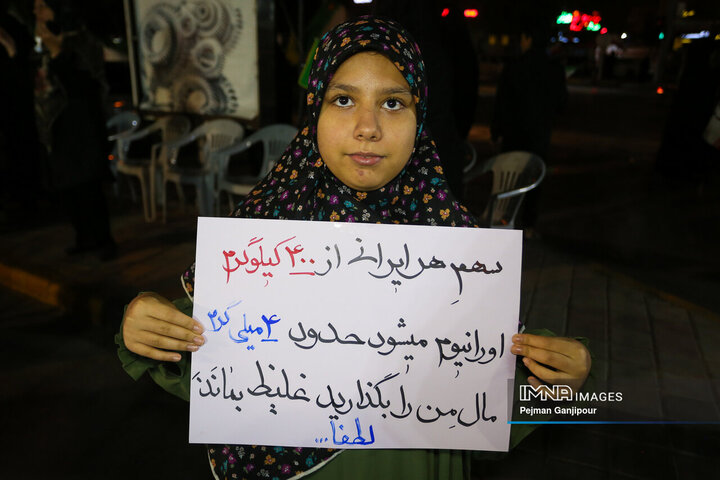 سهم هر ایرانی از ۴۰۰ کیلوگرم
اورانیوم میشود حدود ۴ میلی گرم
مال من را بگذارید غلیظ بماند
لطفا...
IMNA IMAGES
Pejman Ganjipour